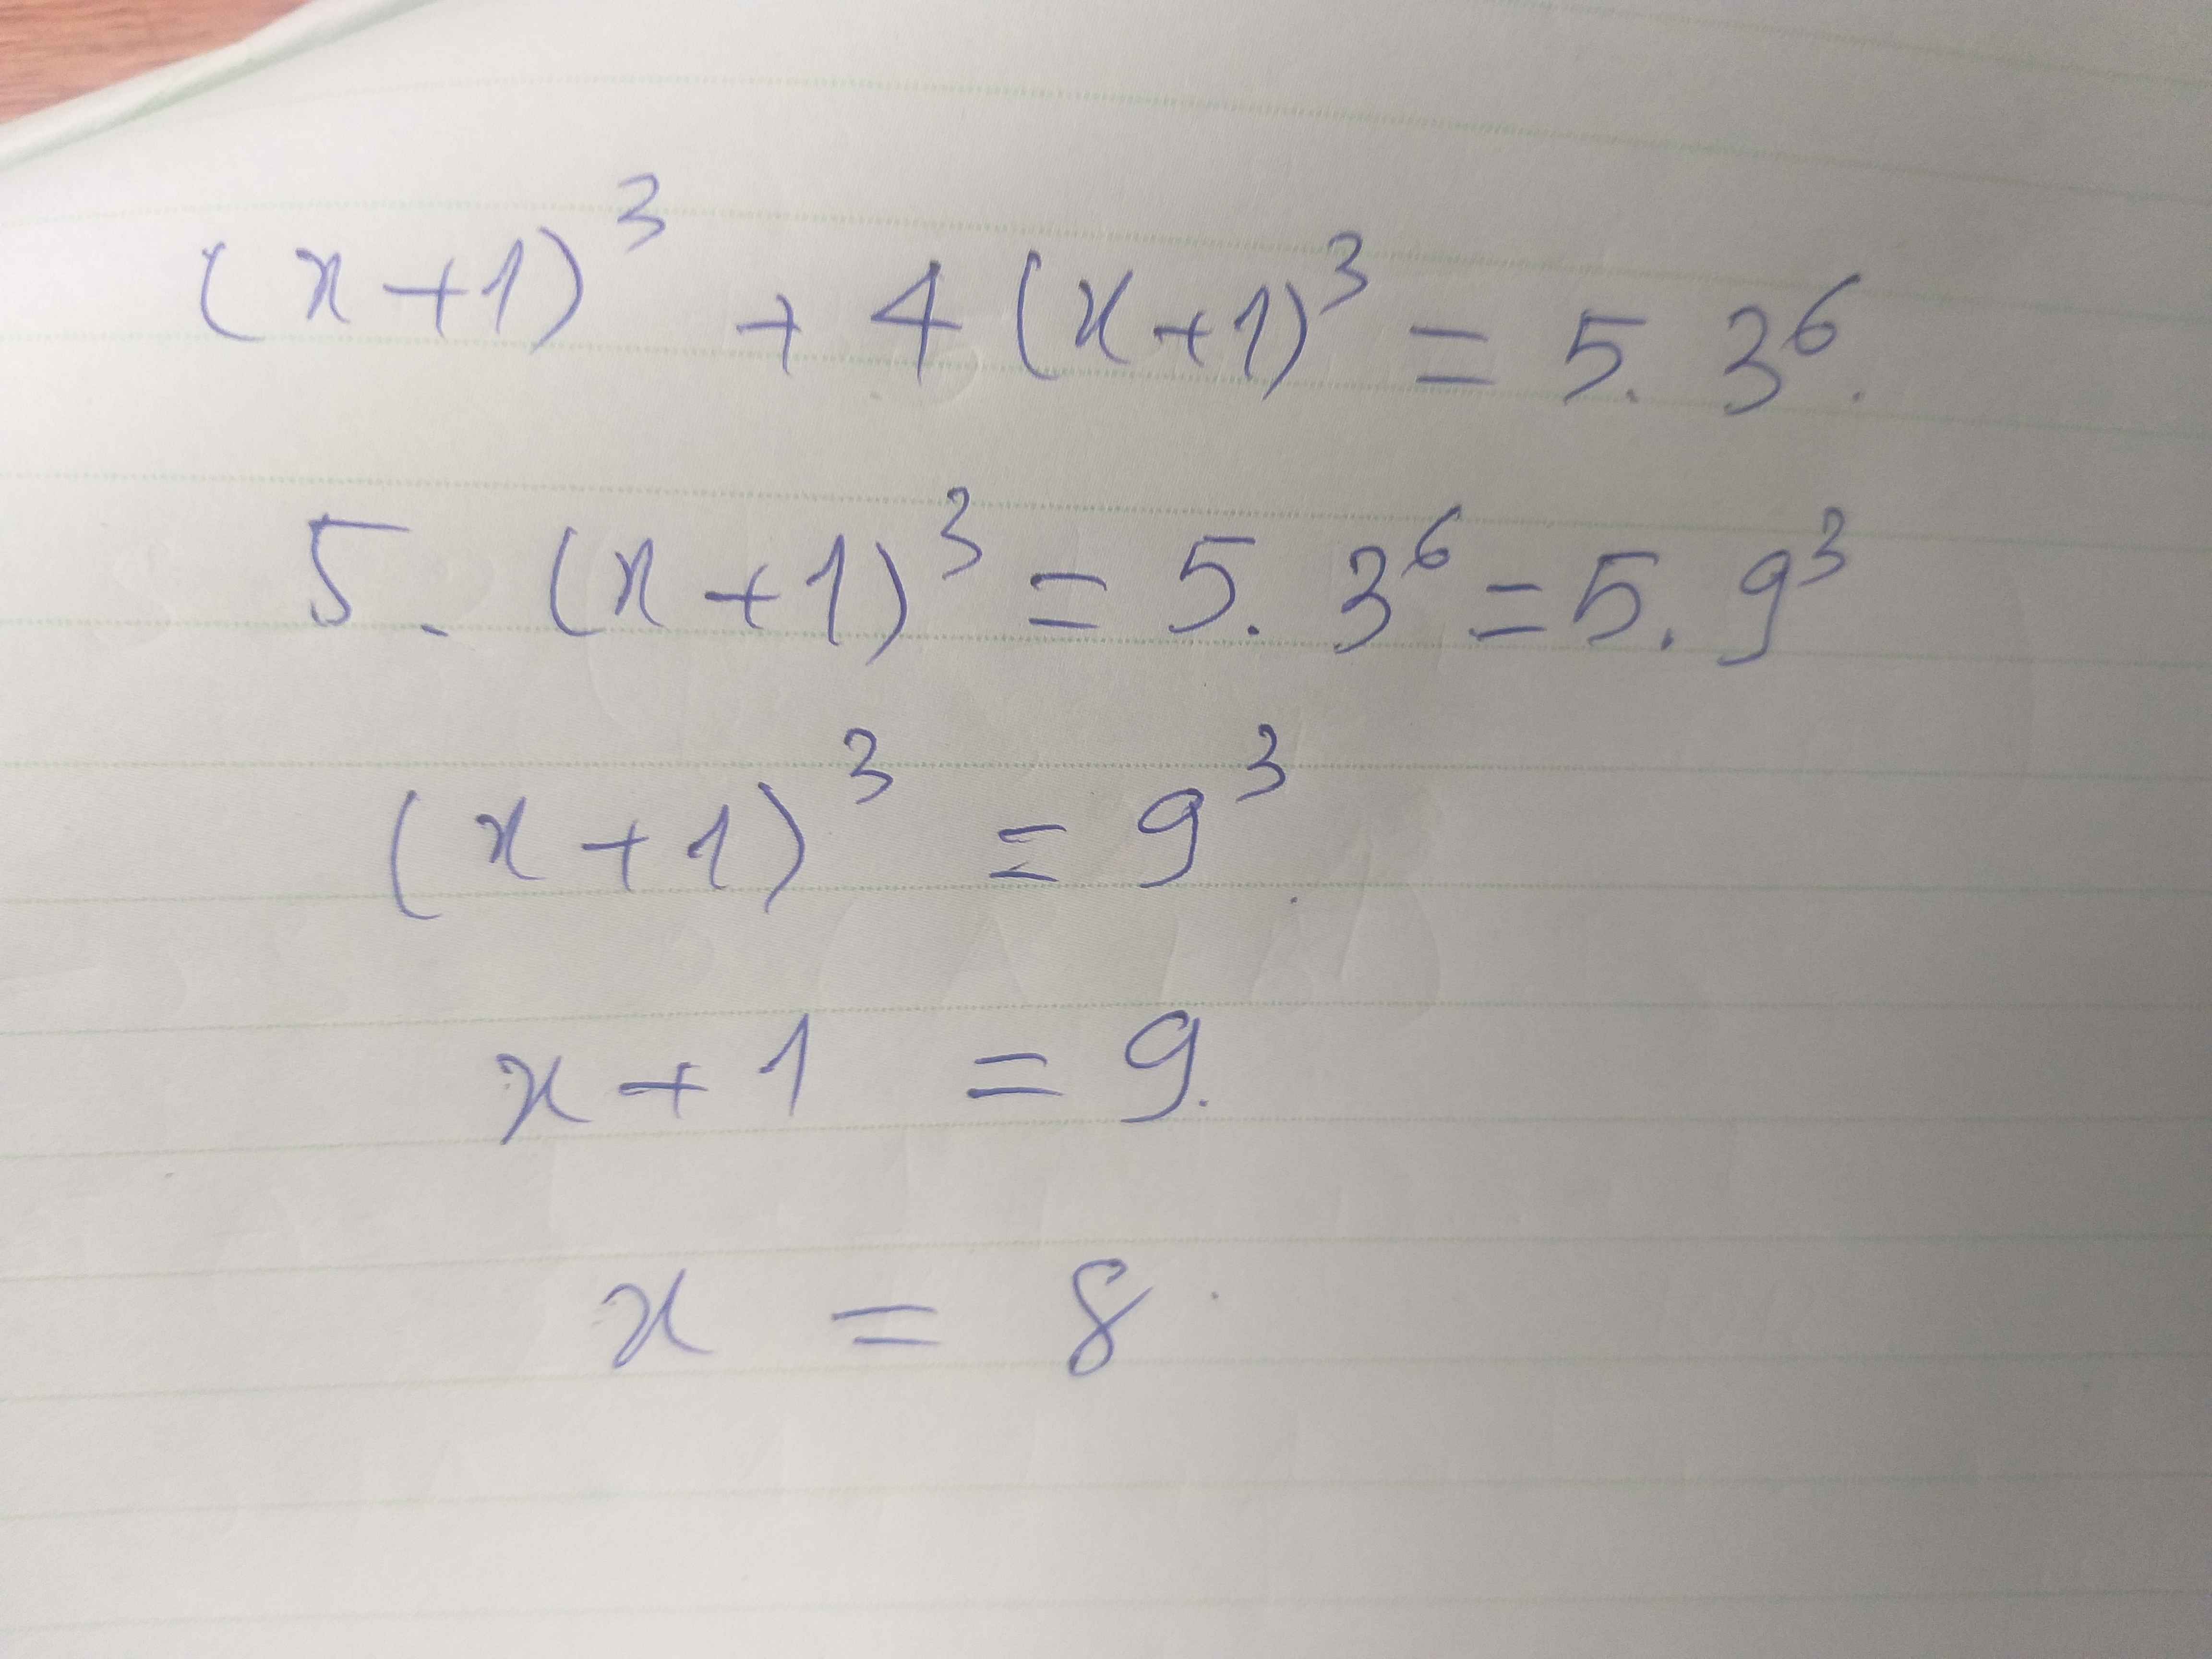 (x+1)³ + 4(x+1)³ = 5. 3⁶.
5. (x+1)³ = 5. 3⁶ = 5. 9³
(x+1)³ = 9³.
x+1 = 9.
x = 8